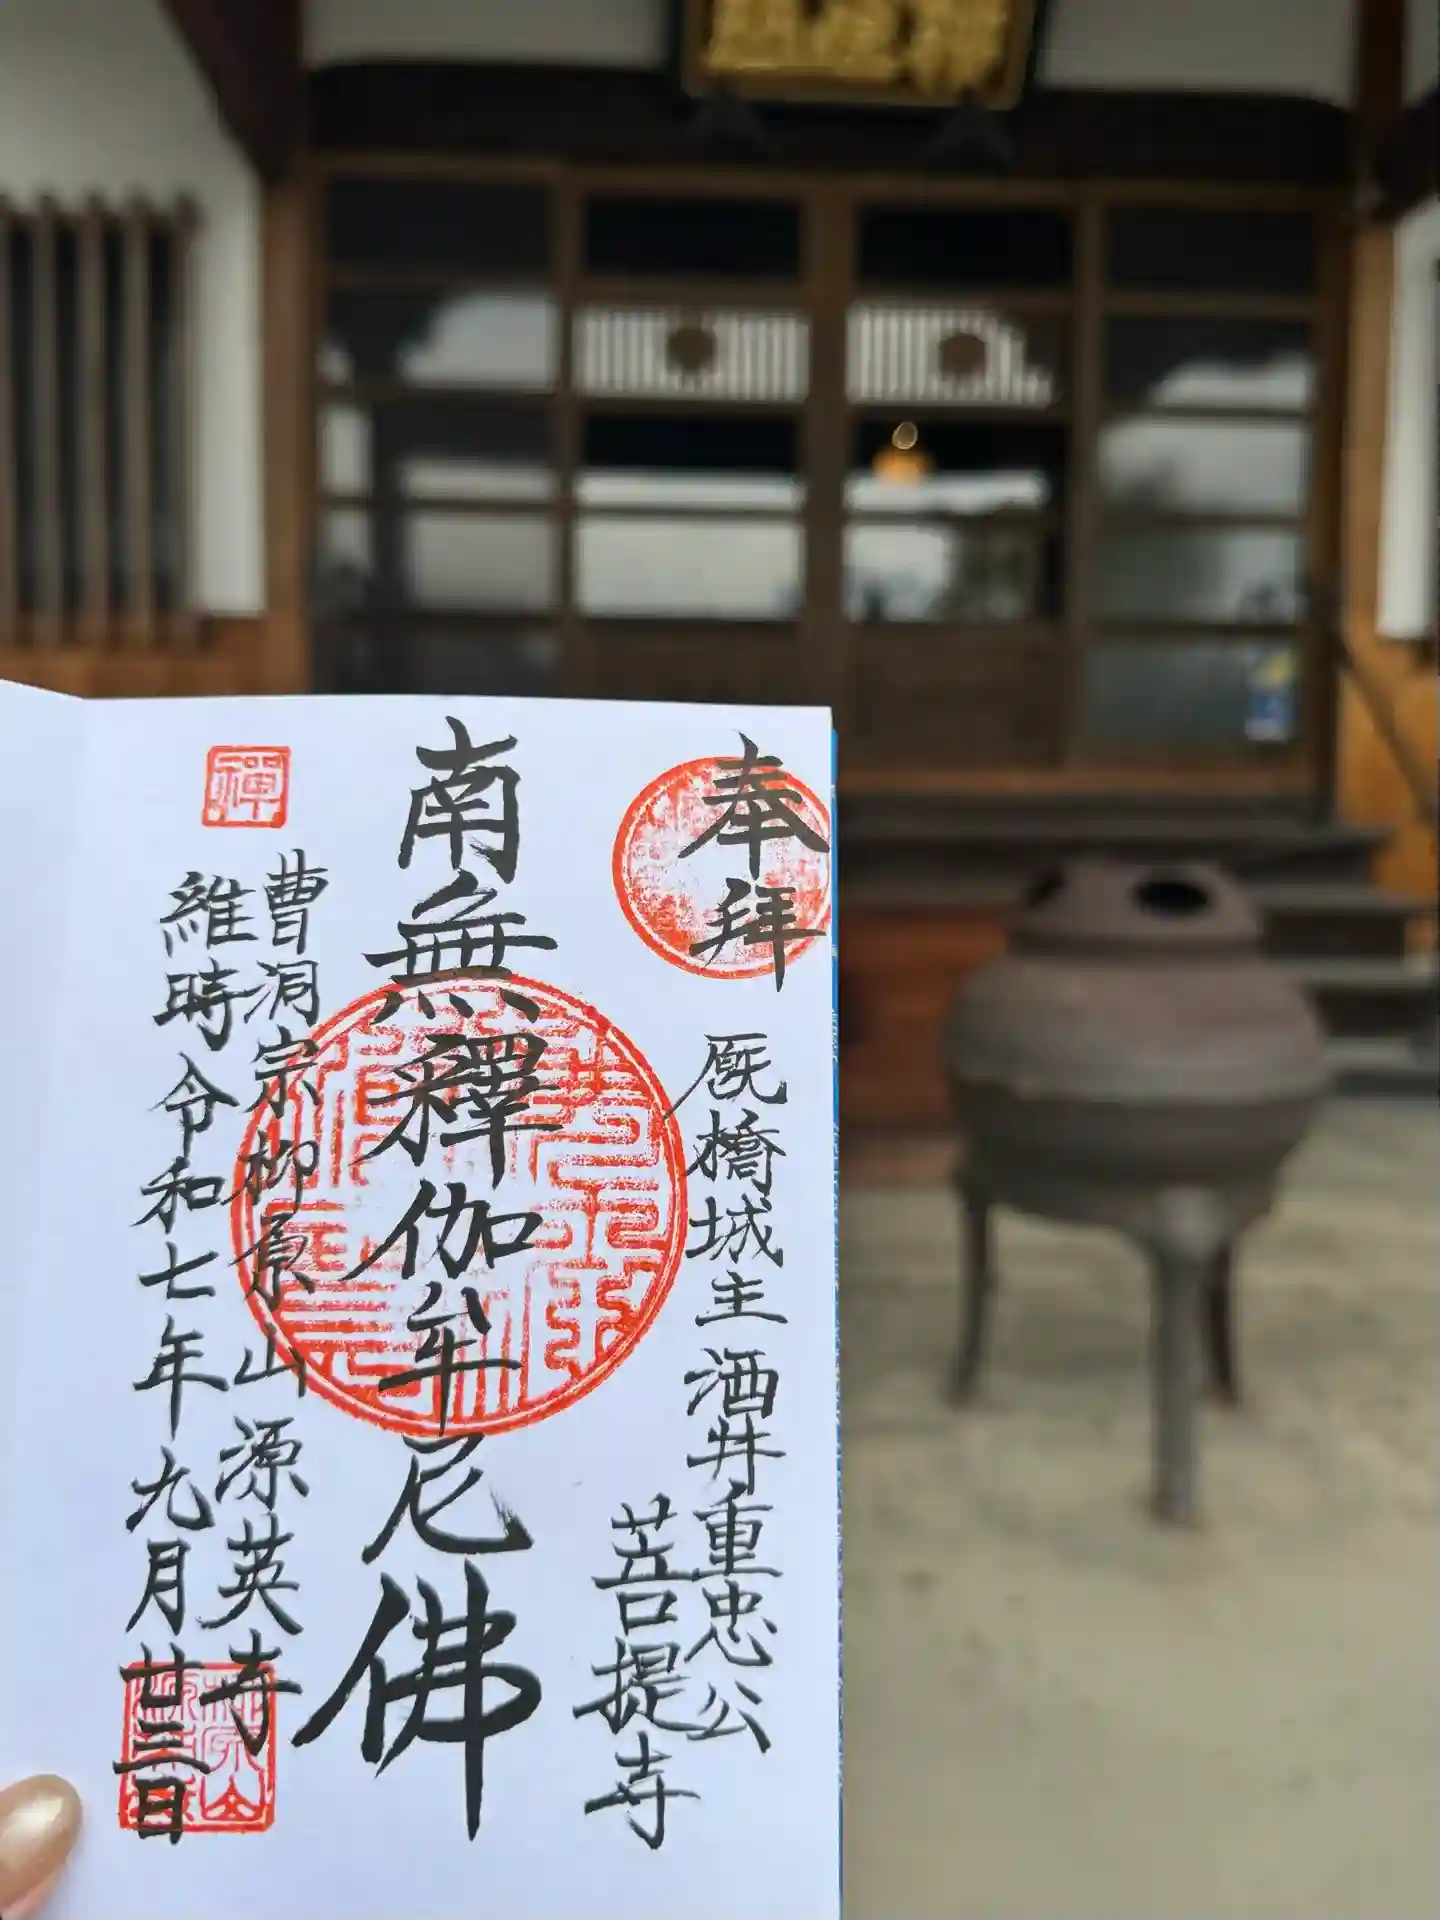 奉拜
厩橋城主酒井重忠公
菩提寺
南無釋伽牟尼佛
禪
曹洞宗柳原山源英寺
維時令和七年九月廿三日